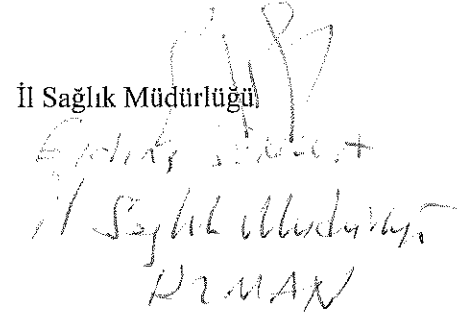 İl Sağlık Müdürlüğü
il Sağlık Müdürlüğü
UZMAN